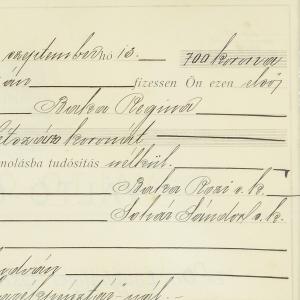 szeptember hó 13. 700 korona
án fizessen Ön ezen első
Baka Regina
étszázs koronát
molásba tudósitás nélkül.
Baka Rozi s. k.
Sohár Sándor s. k.